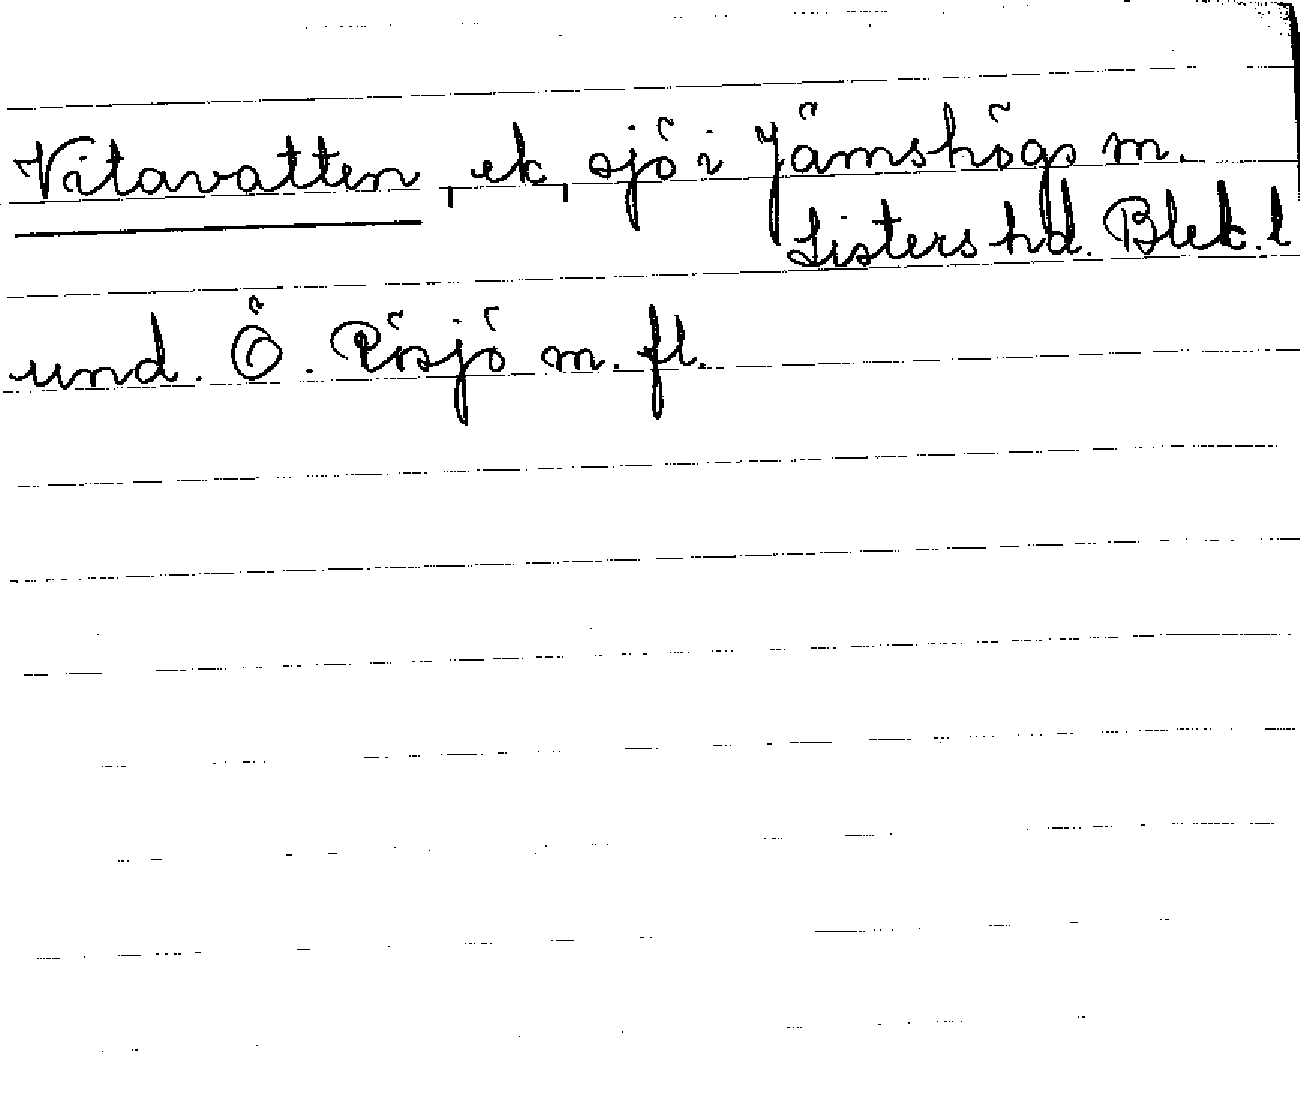 Vitavatten, ek, sjö i Jämshög m.
Listers hd. Blek. l
und. Ö. Rösjö m. fl.